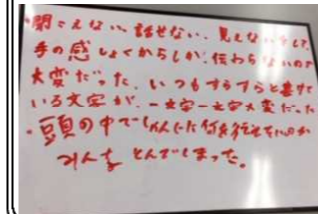 ・聞こえない、話せない、見えない、そして
手の感しょくからしか、伝わらないので
大変だった。いつもすらすらと書けて
いる文字が、一文字一文字大変だった
・頭の中で
みんな とんでしまった。